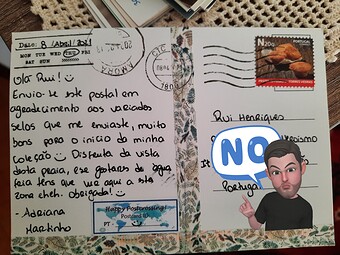 Date: 8 /Abril/2021
MON TUE WED THU FRI
SAT SUN
Olá Rui!
Envio-te este postal em
agradecimento aos variados
selos que me enviaste, muito
bons para o início da minha
coleção. Disfruta da vista
desta praia, e se gostares de água
fria tens que vir aqui a esta
zona eheh. Obrigada!
- Adriana
Martinho
Happy Postcrossing!
Postcard ID
PT -
N20g
Rui Henriques
NO
Portugal